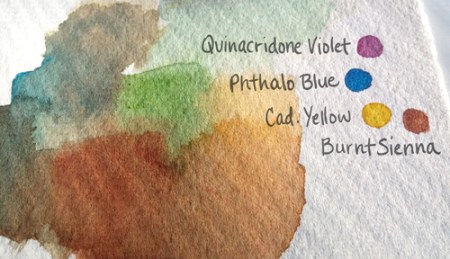 Quinacridone Violet
Phthalo Blue
Cad. Yellow
Burnt Sienna